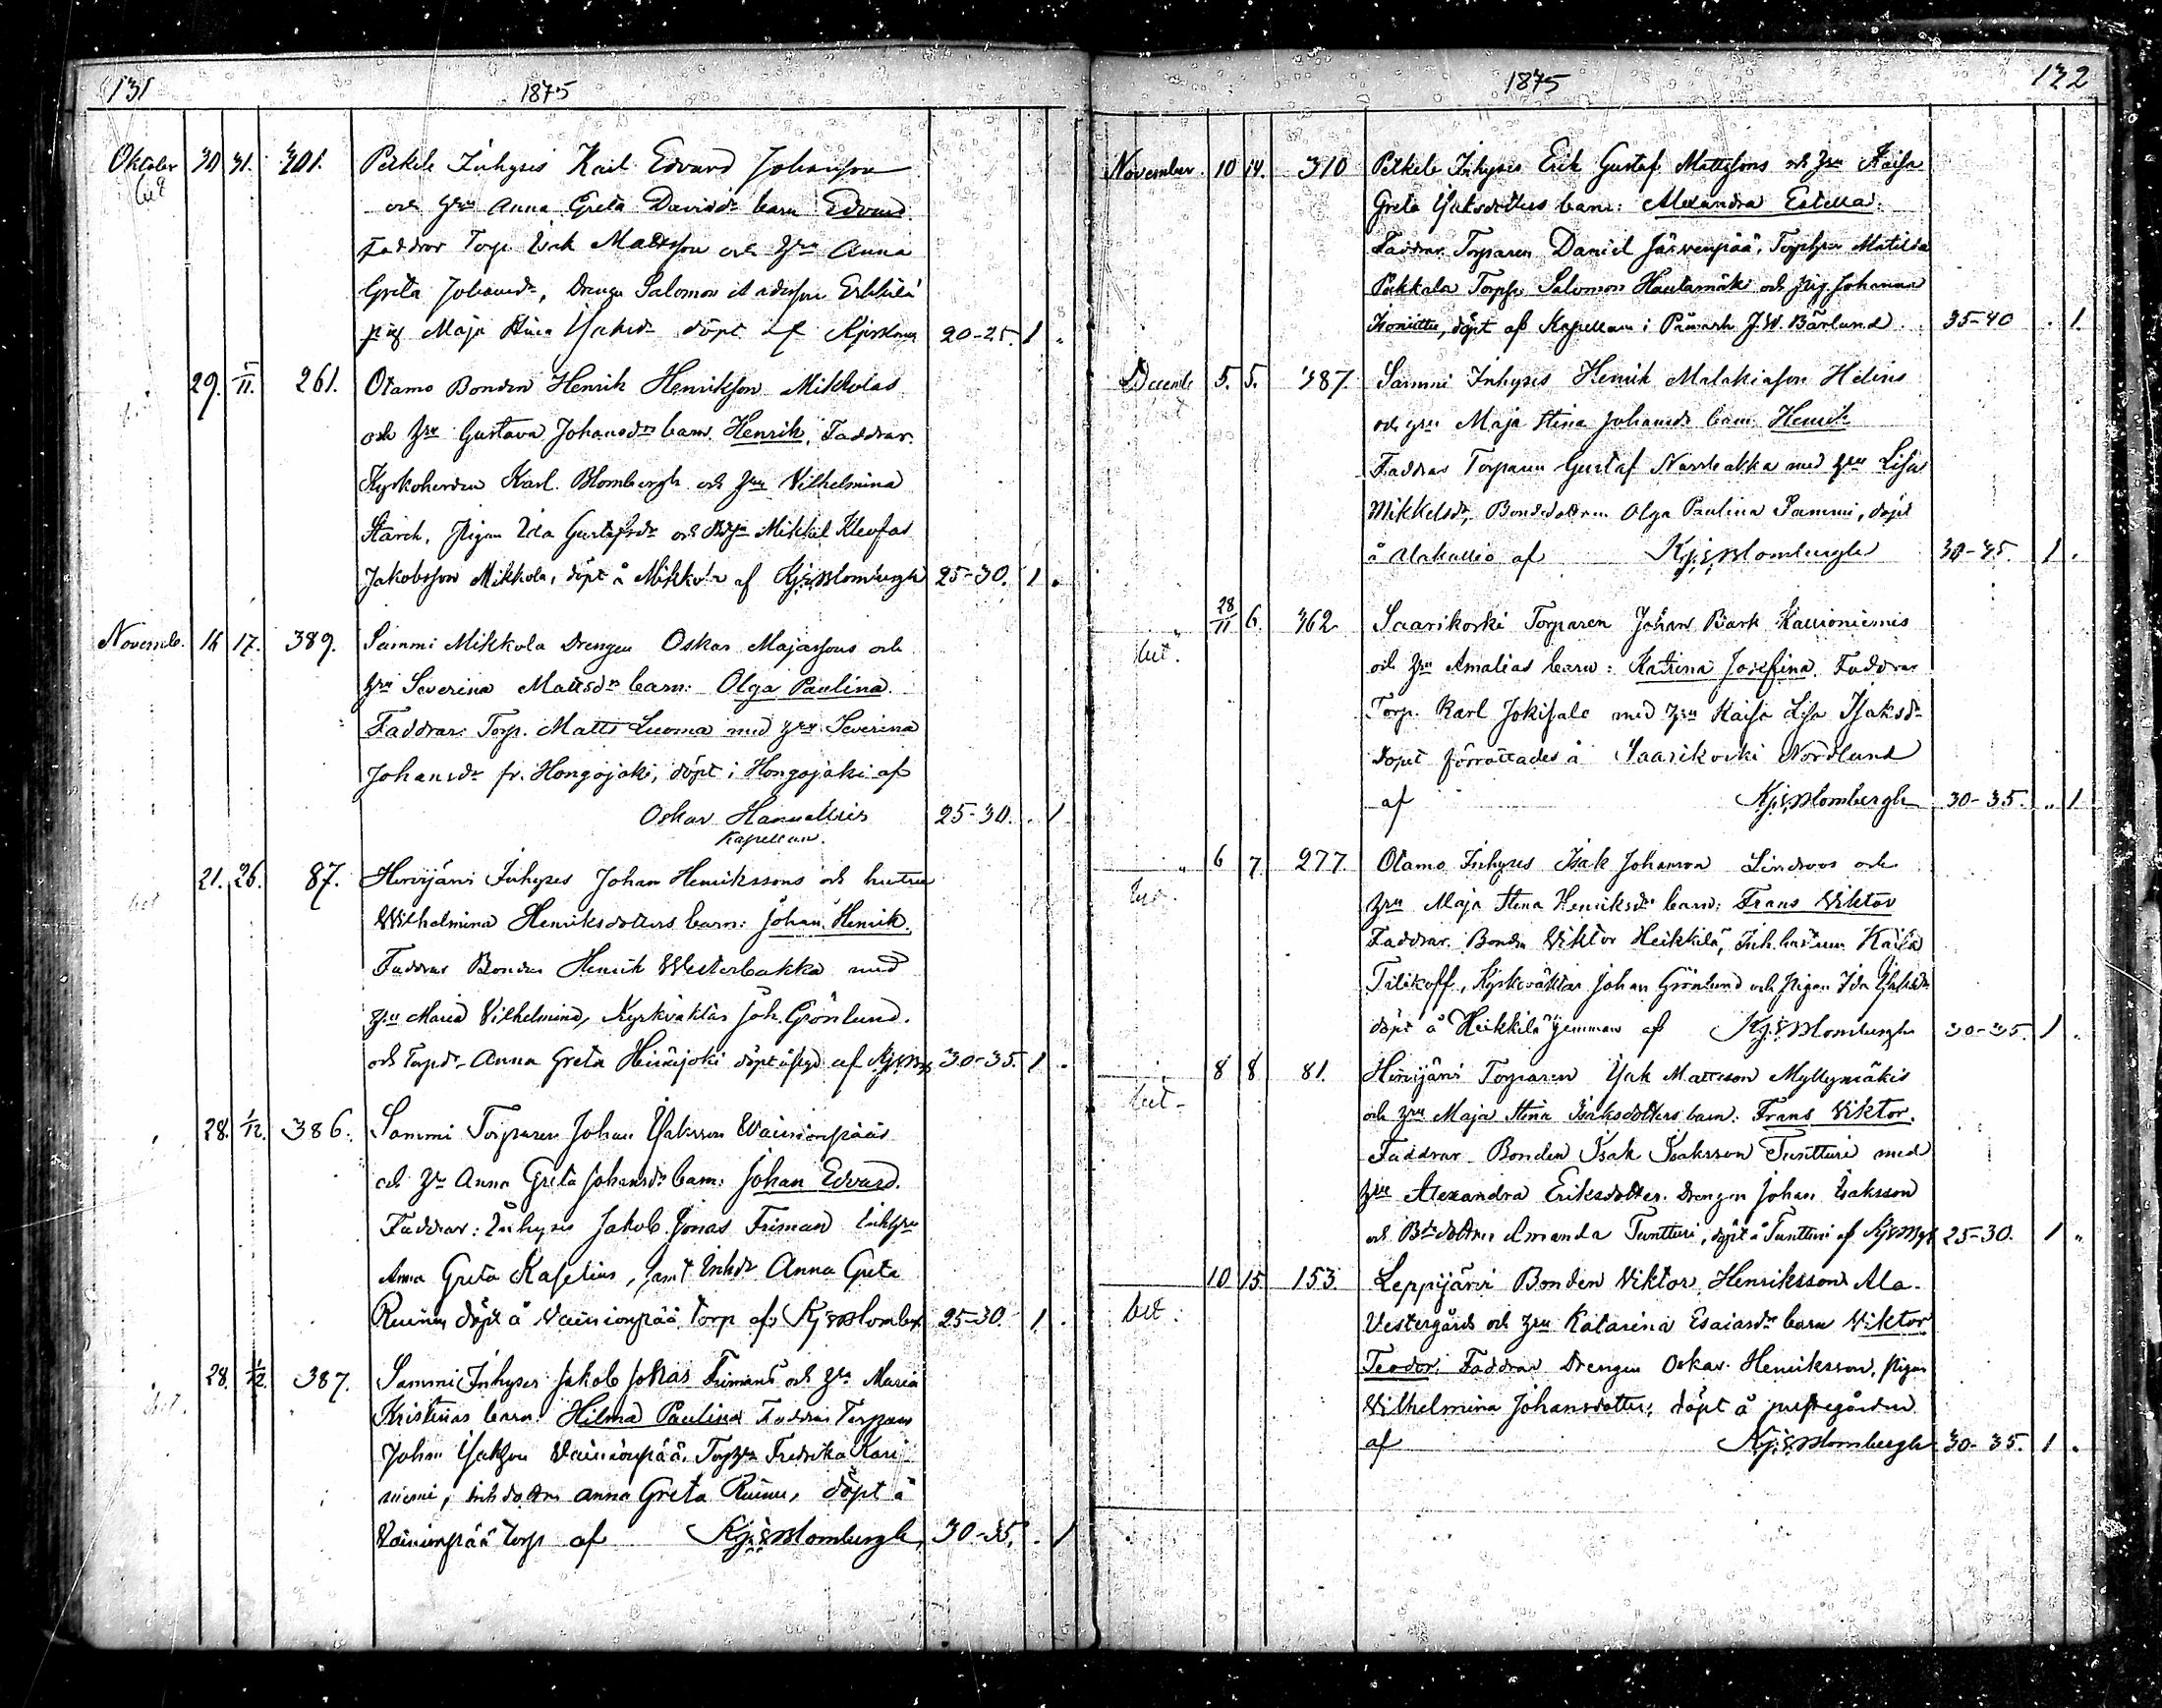 131
1875
Oktober 30 31. 301. Petkele Inhyses Karl Edvard Johansson
och Hru Anna Greta Davidsdr barn Edvard
Faddrar Torp. Isak Mattsson och Hru Anna
Greta Johansdr, Drengen Salomon Erkkilä
pig Maja Stina Isaksdr döpt af Kyrkoh 20-25. 1 "
29. 1/11. 261. Otamo Bonden Henrik Henriksson Mikkolas
och Hru Gustava Johansdrs barn Henrik, Faddrar.
Kyrkoherden Karl Blombergh och Hru Vilhelmina
Starck, Pigan Ida Gustafsdr och Mikkel Kleofas
Jakobsson Mikkola, döpt å Mikkola af KjEBlombergh 25-30. 1 "
Novemb. 16 17. 389. Sammi Mikkola Drengen Oskar Majassons och
Hru Severina Mattsdrs barn: Olga Paulina.
Faddrar: Torp. Matts Luoma med Hru Severina
Johansdr fr. Hongojoki, döpt i Hongojoki af
Oskar Hannelius 25-30. . 1
Kapellan.
21. 26. 87. Hirvijärvi Inhyses Johan Henrikssons och hustru
Wilhelmina Henriksdotters barn: Johan Henrik.
Faddrar Bonden Henrik Westerbakka med
Hru Maria Vilhelmina, Kyrkväktar Joh. Grönlund.
och Torpdr Anna Greta Heinijoki döpt af 30-35. 1 "
28. 1/12. 386. Sammi Torparen Johan Isaksson Wainionpääs
och Hr Anna Greta Johansdrs barn: Johan Edvard.
Faddrar: Inhyses Jakob Jonas Friman Inhhru
Anna Greta Kaselius, samt Inhdr Anna Greta
döpt å Vainionpää Torp af KjEBlombergh 25-30 1 "
28. 1/12. 387. Sammi Inhyses Jakob Jonas Frimans och Hru Maria
Kristinas barn: Hilma Paulina Faddrar Torparen
Johan Isaksson Vainionpää, Torphru Fredrika Kari-
niemi, Inhdottren Anna Greta döpt å
Vainionpää torp af KjEBlombergh 30-35. . 1
1875
132
November. 10 14. 310 Petkele Inhyses Erik Gustaf Mattssons och Hru Kaisa
Greta Isaksdotters barn: Alexandra Estella.
Faddrar. Torparen Daniel Järvenpää, Torphru Matilda
Pukkala Torps Salomon Hautamäki och pig. Johanna
döpt af Kapellan i Påmark J.W. Bärlund 35-40 . 1.
Decemb 5. 5. 387. Sammi Inhyses Henrik Malakiasson Helins
och Hru Maja Stina Johansdr barn: Henrik
Faddrar Torparen Gustaf med Hru Lisa
Mikkelsdr, Bondedottren Olga Paulina Sammi, döpt
å Alakallio af KjEBlombergh 30-35. 1 .
" 28/11 6. 362 Saarikoski Torparen Johan Kallioniemis
och Hru Amalias barn: Katrina Josefina. Faddrar
Torp. Karl Jokisalo med Hru Kaisa Lisa Isaksdr
Dopet förrättades å Saarikoski Nordlund
af KjEBlombergh 30-35. " 1
" 6 7 277. Otamo Inhyses Isak Johansson Lindroos och
Hru Maja Stina Henriksdrs barn: Frans Viktor
Faddrar. Bonden Viktor Heikkilä, Inh. hustrun Kaisa
Kyrkväktar Johan Grönlund och Pigan Ida Isaksdr
döpt å Heikkilä hemman af KjEBlombergh 30-35. 1 .
8 8 81. Hirvijärvi Torparen Isak Mattsson Myllymäkis
och Hru Maja Stina Isaksdotters barn: Frans Viktor.
Faddrar Bonden Isak Isaksson Tuntturi med
Hru Alexandra Eriksdotter. Drengen Johan Isaksson
och Bdedottren Amanda Tuntturi, döpt å Tuntturi af 25-30. 1 "
10 15. 153. Leppijärvi Bonden Viktor Henriksson Ala-
Vestergårds och Hru Katarina Esaiasdrs barn Viktor
Teodor. Faddrar Drengen Oskar Henriksson, pigan
Vilhelmina Johansdotter, döpt å prestgården
af KjEBlombergh 30-35. 1 .